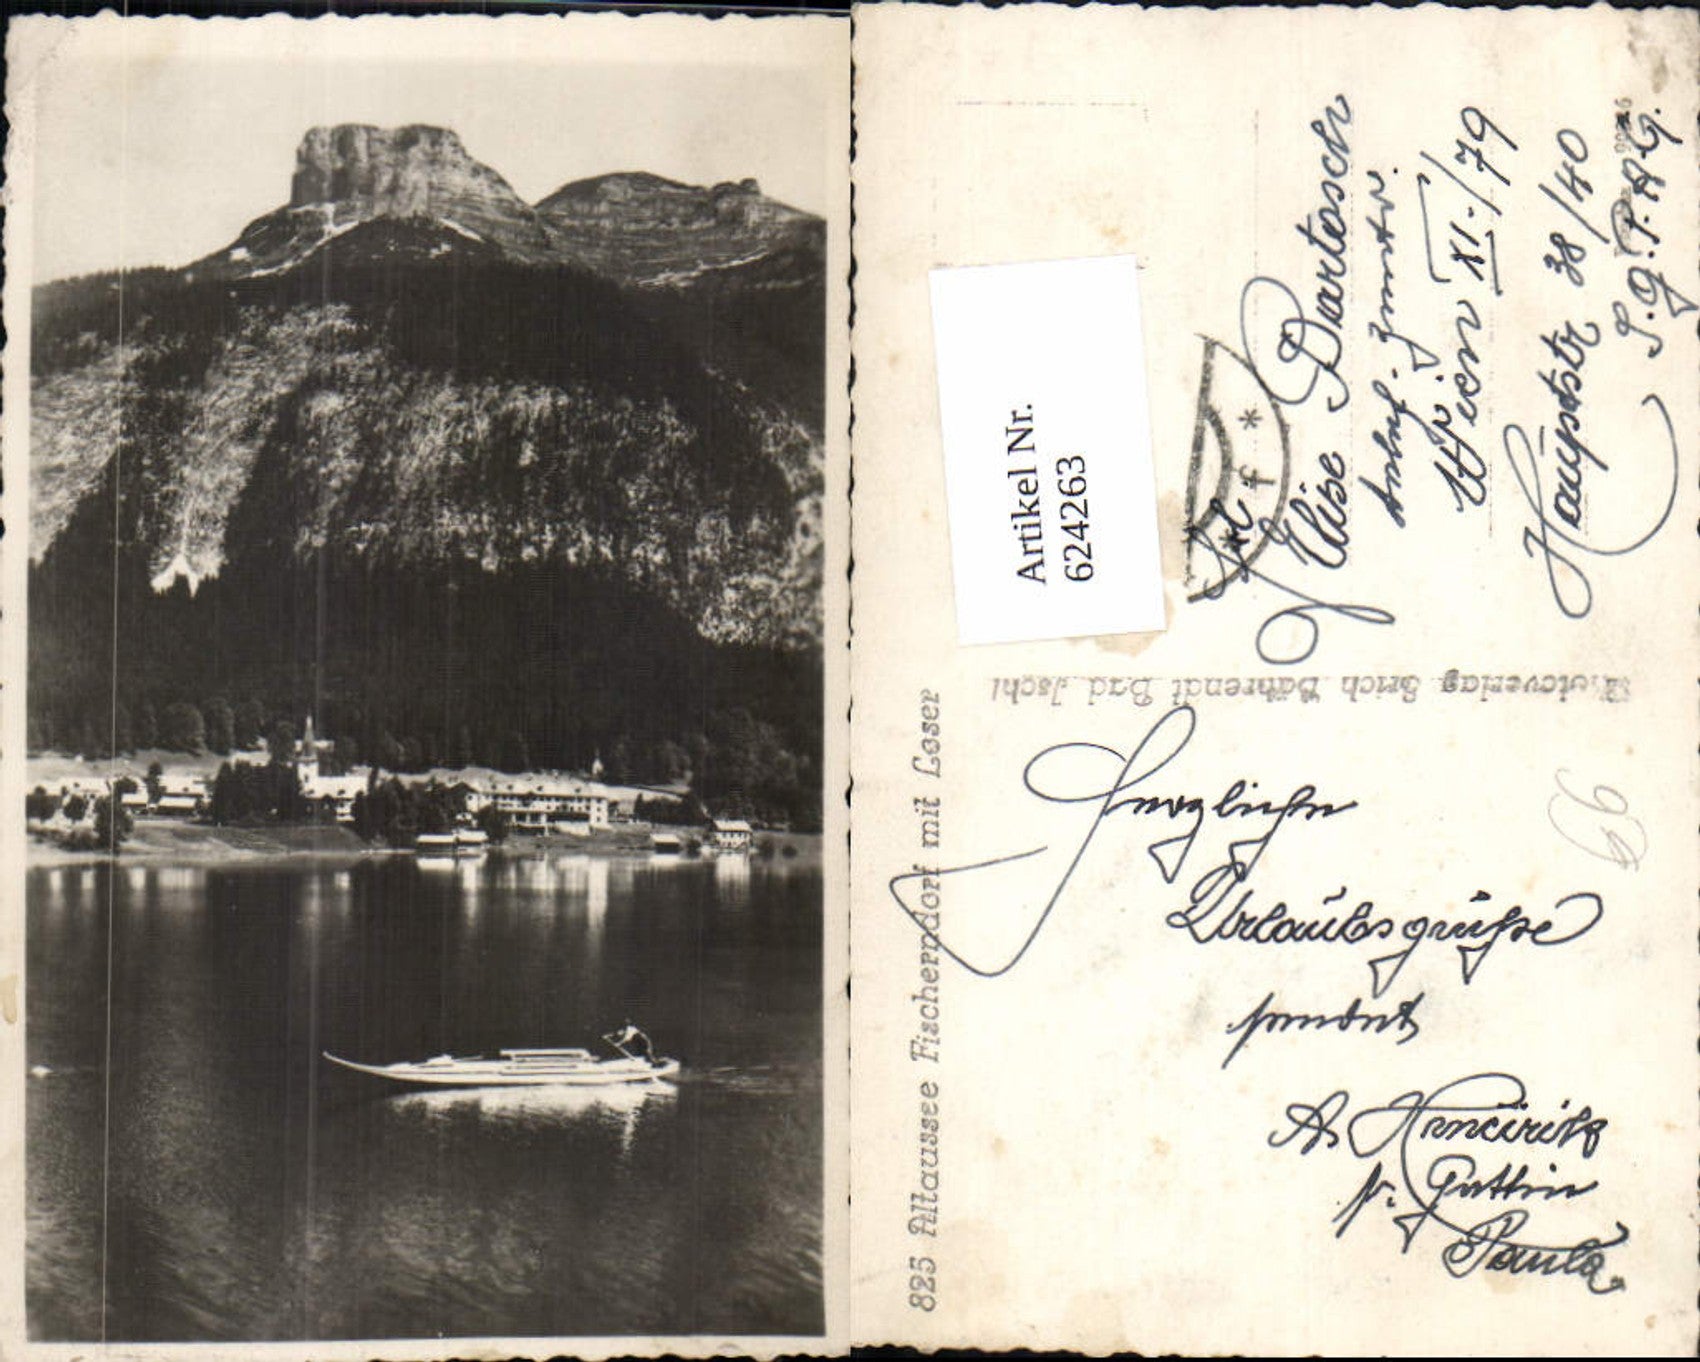 Artikel Nr.
624263
825 Altaussee Fischerndorf mit Loser
Fotoverlag Erich Bährendt Bad Ischl
Herzliche
Urlaubsgrüße
sendet
Gattin
Paula
Frl
Elise Bartosch
Wien XI./79
Hauptstr 38/40